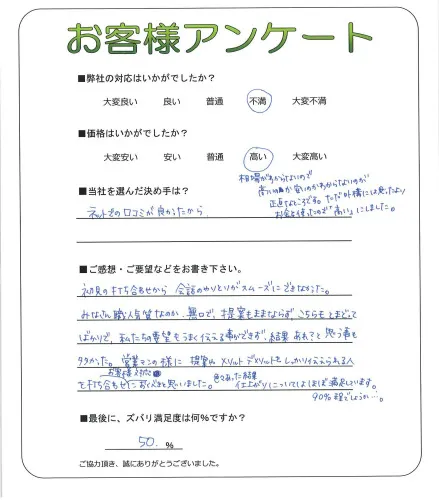 お客様アンケート
■弊社の対応はいかがでしたか?
大変良い 良い 普通 不満 大変不満
■価格はいかがでしたか?
大変安い 安い 普通 高い 大変高い
相場がわからないので
高いのか安いのかわからないのが
正直なところです。ただ外構には思ったより
お金を使ったので「高い」にしました。
■当社を選んだ決め手は?
ネットでの口コミが良かったから
■ご感想・ご要望などをお書き下さい。
初見の打ち合わせから 会話のやりとりがスムーズにできなかった。
みなさん職人気質なのか、無口で、提案もままならず、こちらもとまどって
ばかりで、私たちの要望もうまく伝える事ができず、結果 あれ?と思う事も
多かった。営業マンの様に 提案や メリット デメリットをしっかり伝えられる人
お客様対応
を打ち合せにおくべきと思いました。色々あった結果
仕上がりについてはほぼ満足しています。
90%程でしょうか…。
■最後に、ズバリ満足度は何%ですか?
50. %
ご協力頂き、誠にありがとうございました。